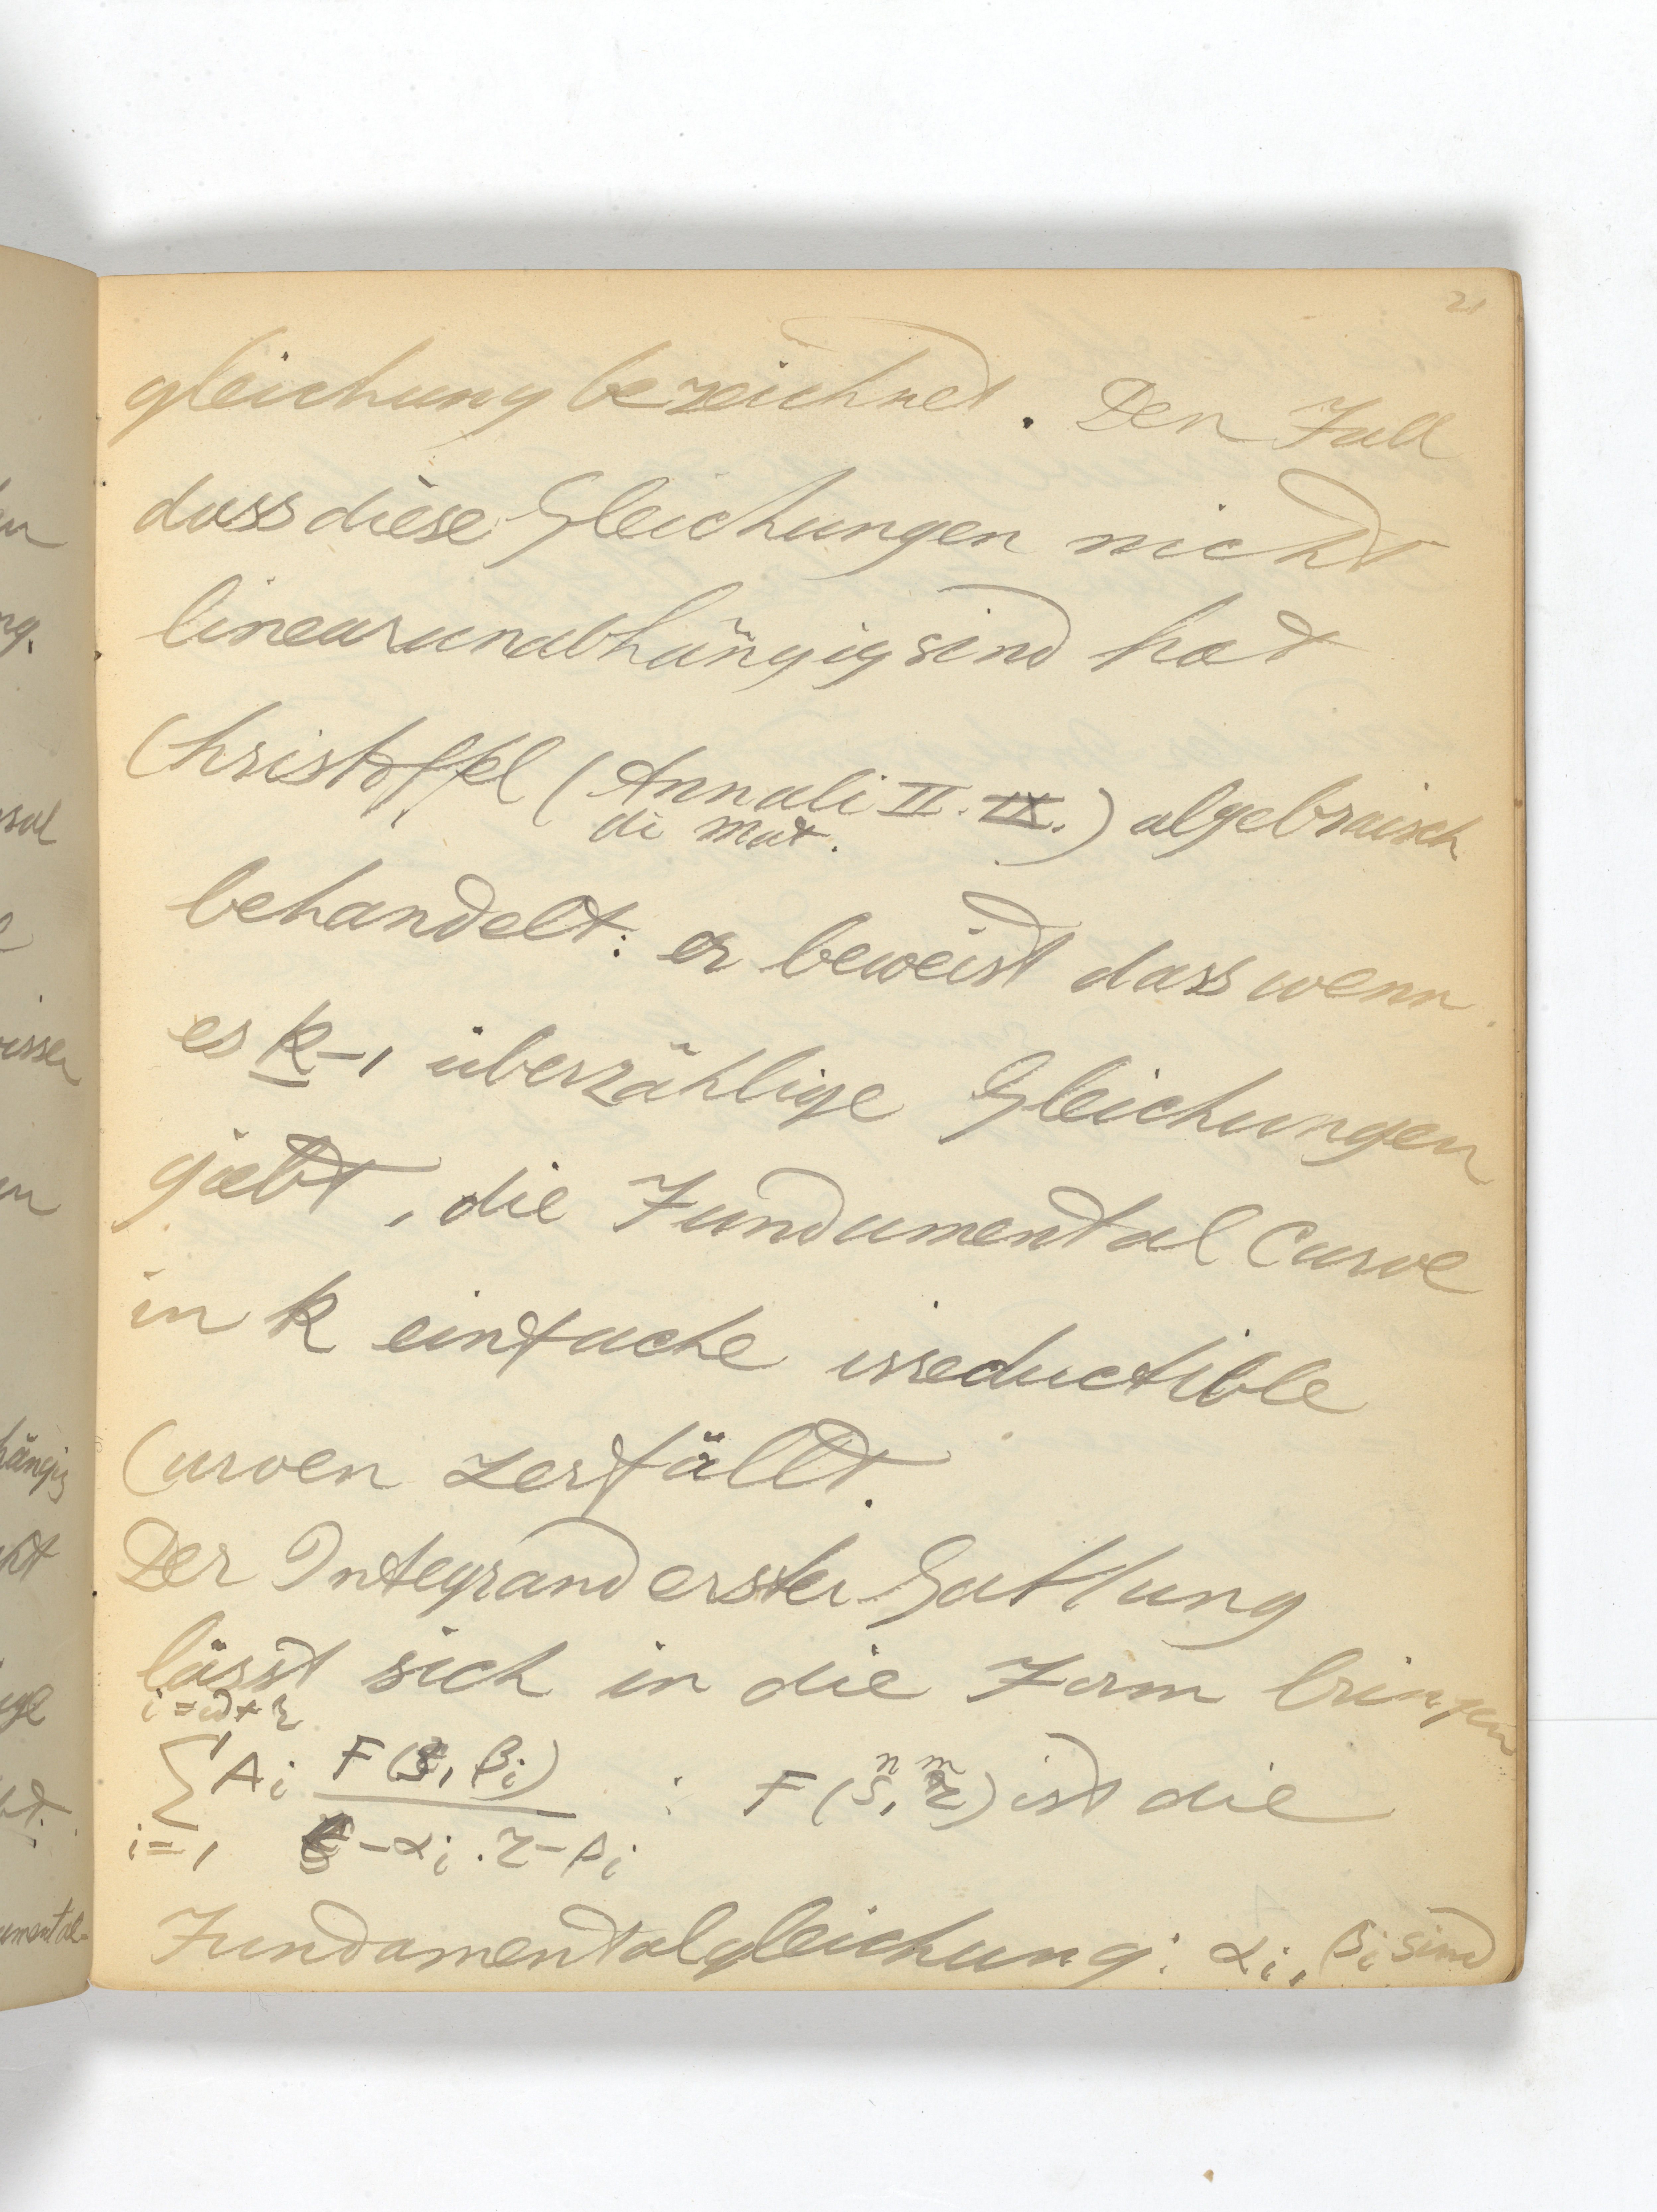 21
gleichung bezeichnet. Den Fall
dass diese Gleichungen nicht
linearunabhängig sind hat
Christoffel (Annali II. IX.) algebraisch
di Mat.
behandelt: er beweist dass wenn
es k-1 überzählige Gleichungen
giebt, die Fundamental Curve
in k einfache irreductible
Curven zerfällt.
Der Integrand erster Gattung
lässt sich in die Form bringen
i=w+r
∑ Ai F(s, βi) : F(s^n, z^m) ist die
i=1 s-αi . z-βi
Fundamentalgleichung: αi, βi sind